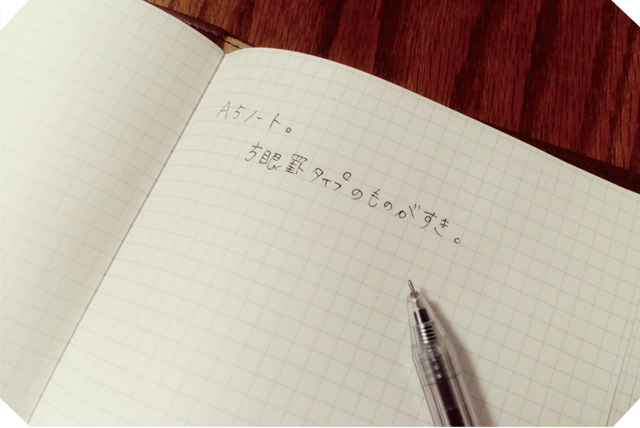 A5ノート。
方眼罫タイプのものがすき。